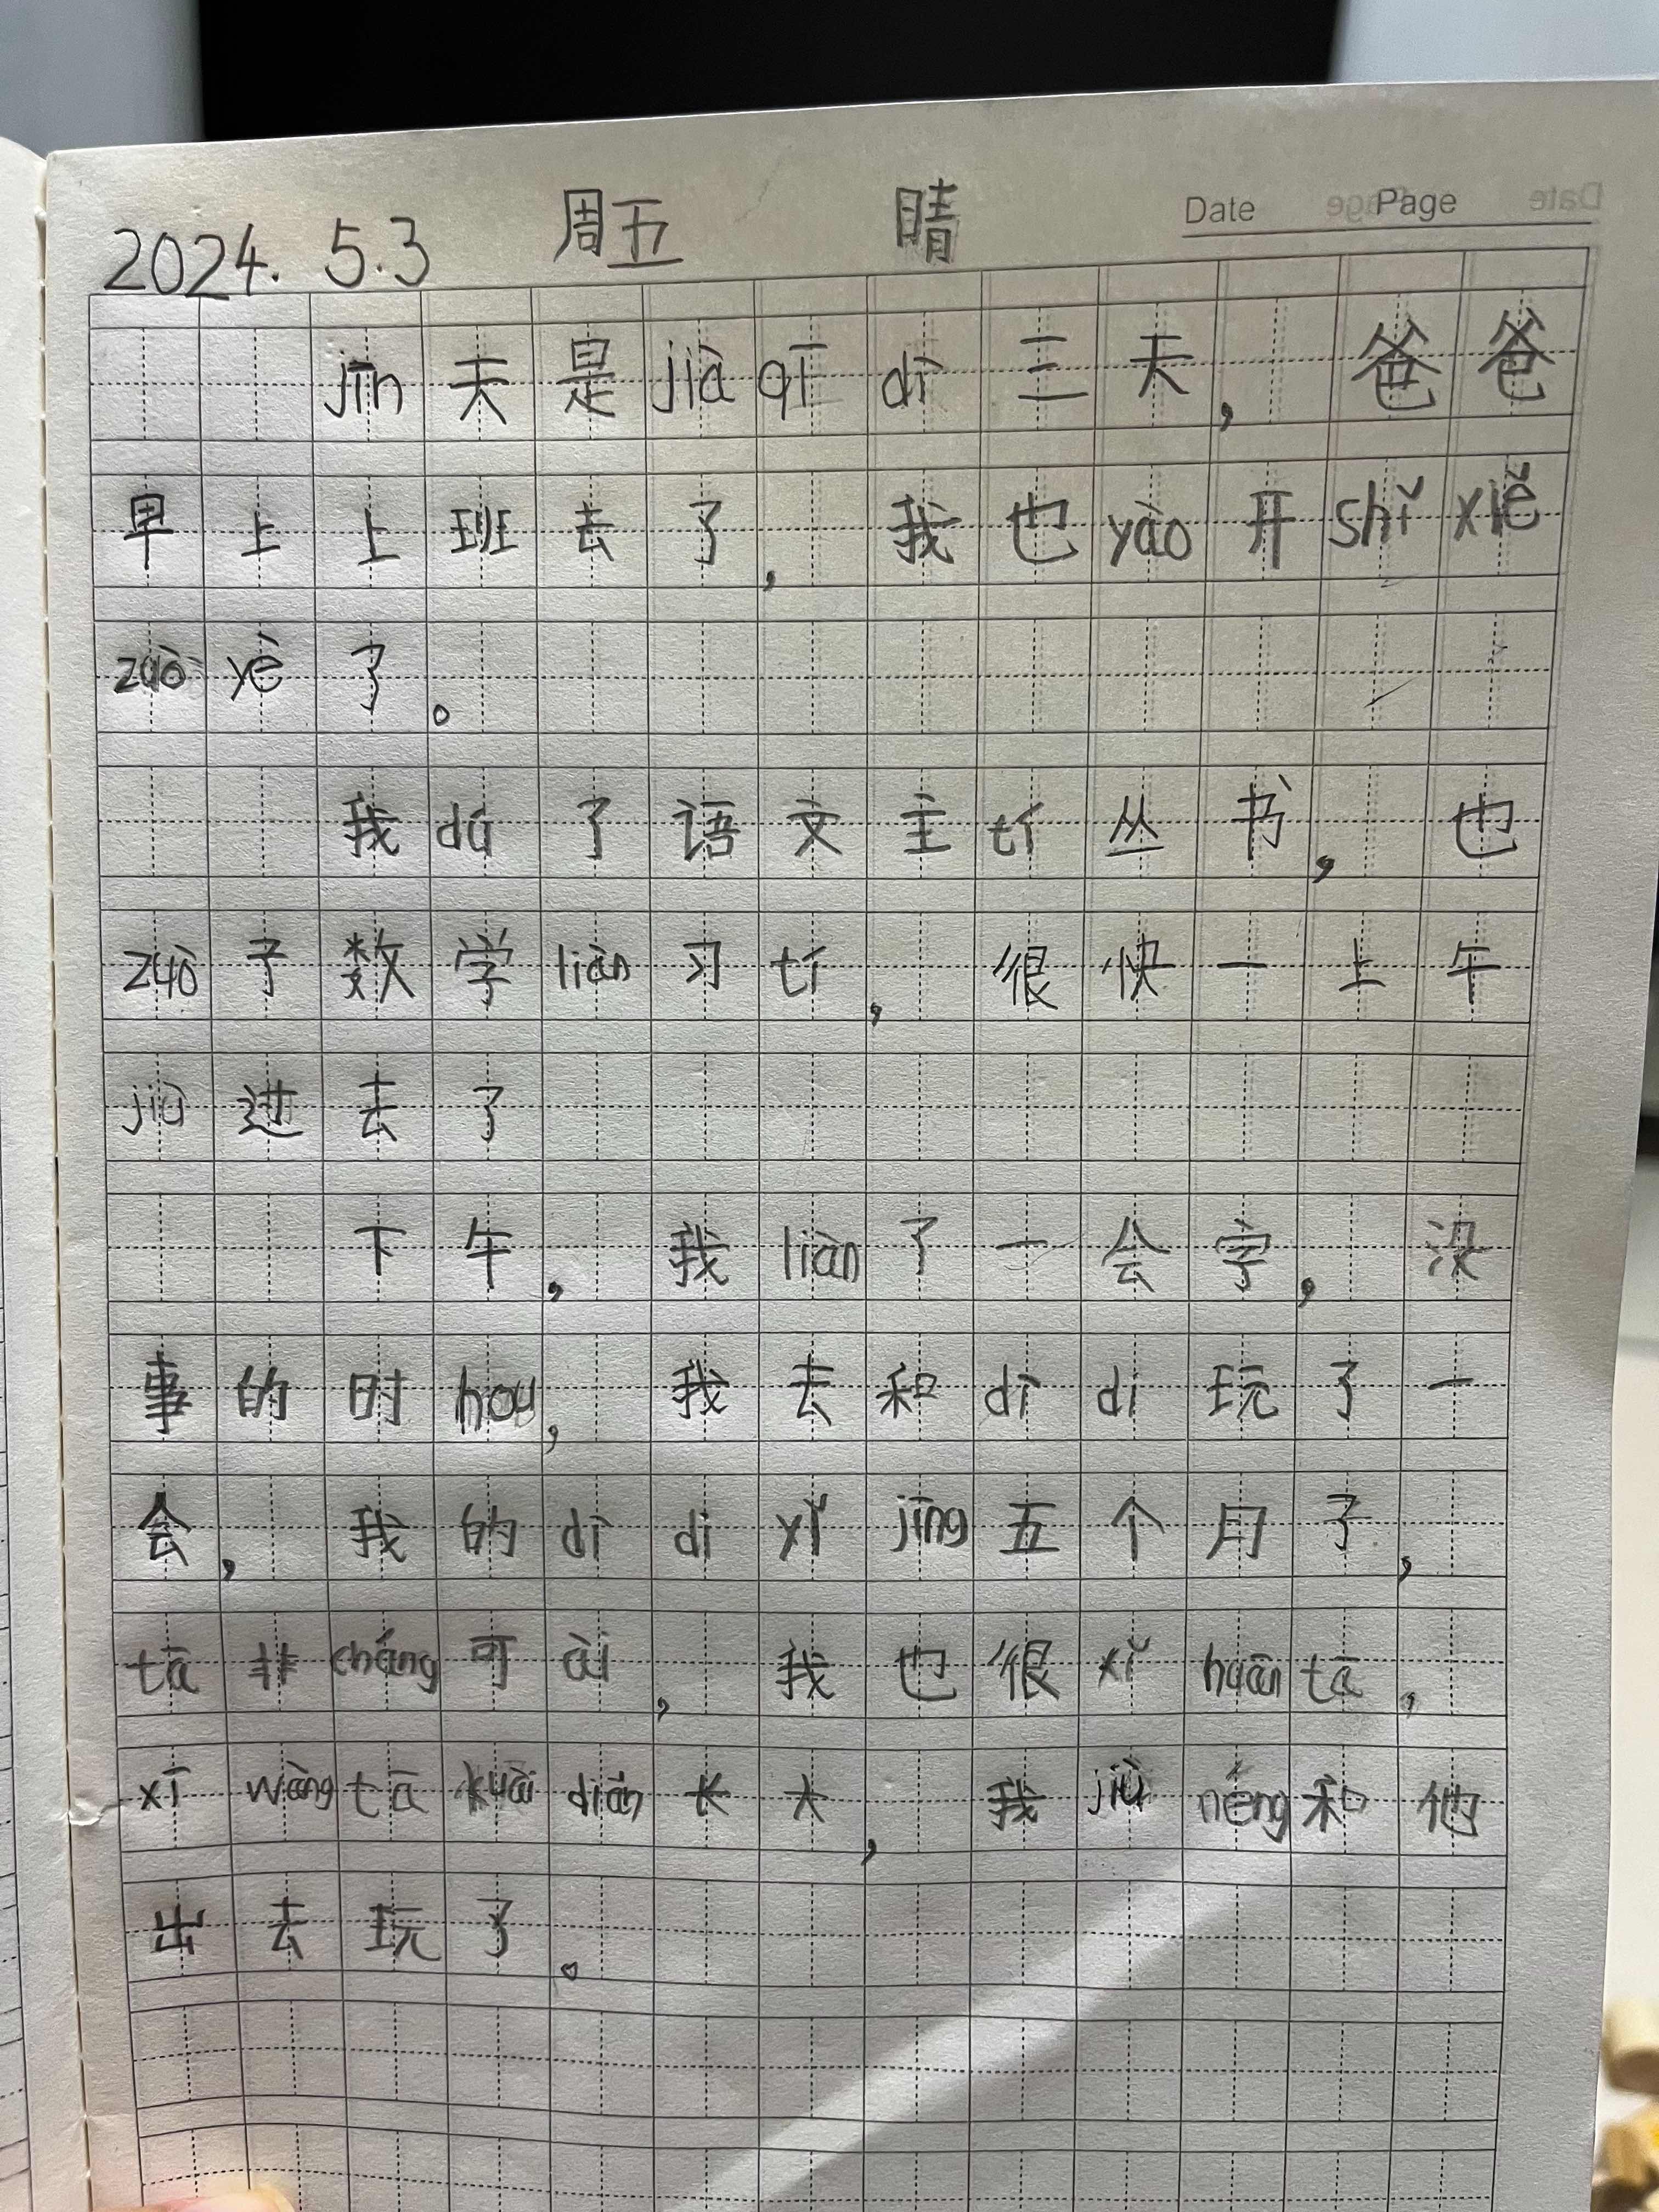 2024. 5.3 周五 晴 Date Page
jīn天是jià qī dì三天，爸爸
早上上班去了，我也yào开shǐ xiě
zuò yè了。
我dú了语文主tí丛书，也
zuò了数学liàn习tí，很快一上午
jiù过去了
下午，我liàn了一会字，没
事的时hou，我去和dì di玩了一
会，我的dì di yǐ jīng五个月了，
tā非cháng可ài，我也很xǐ huān tā。
xī wàng tā kuài diǎn长大，我jiù néng和他
出去玩了。